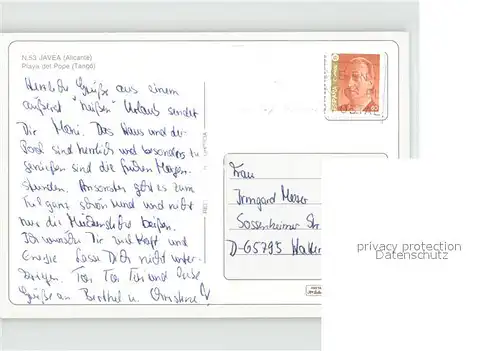 N.53 JAVEA (Alicante)
Playa del Pope (Tango)
Herzliche Grüße aus einem
äußerst "heißen" Urlaub sendet
Dir Moni. Das Haus und der
Pool sind herrlich und besonders zu
genießen sind die frühen Morgen-
stunden. Ansonsten geht es zum
Teil ganz schön rund und nicht
nur die Mückenstiche beißen.
Ich wünsche Dir viel Kraft und
Energie. Lass Dich nicht unter-
kriegen. Toi Toi Toi und liebe
Grüße an Berthel u. Christine
Frau
Irmgard Moser
Sossenheimer Str.
D-65795
privacy protection
Datenschutz